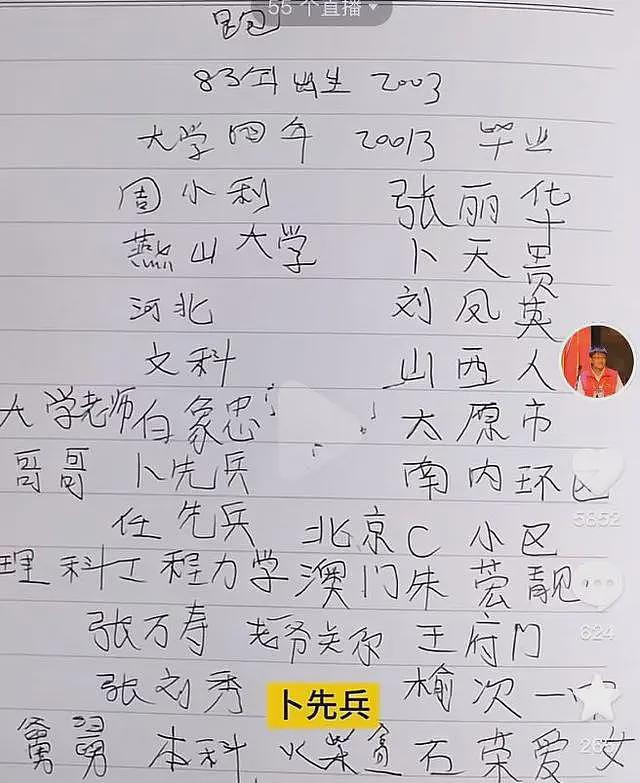 55 个直播
跑
83年出生 2003
大学四年 20013 毕业
周小利 张丽华
燕山大学 卜天贵
河北 刘凤英
文科 山西人
大学老师白象忠 太原市
哥哥 卜先兵 南内环区
任先兵 北京C小区
5852
理科工程力学 澳门朱 靓
张万寿 老爷关系 王府门
624
张刘秀 榆次一中
卜先兵
舅舅 本科 火柴盒 石荣爱女
265